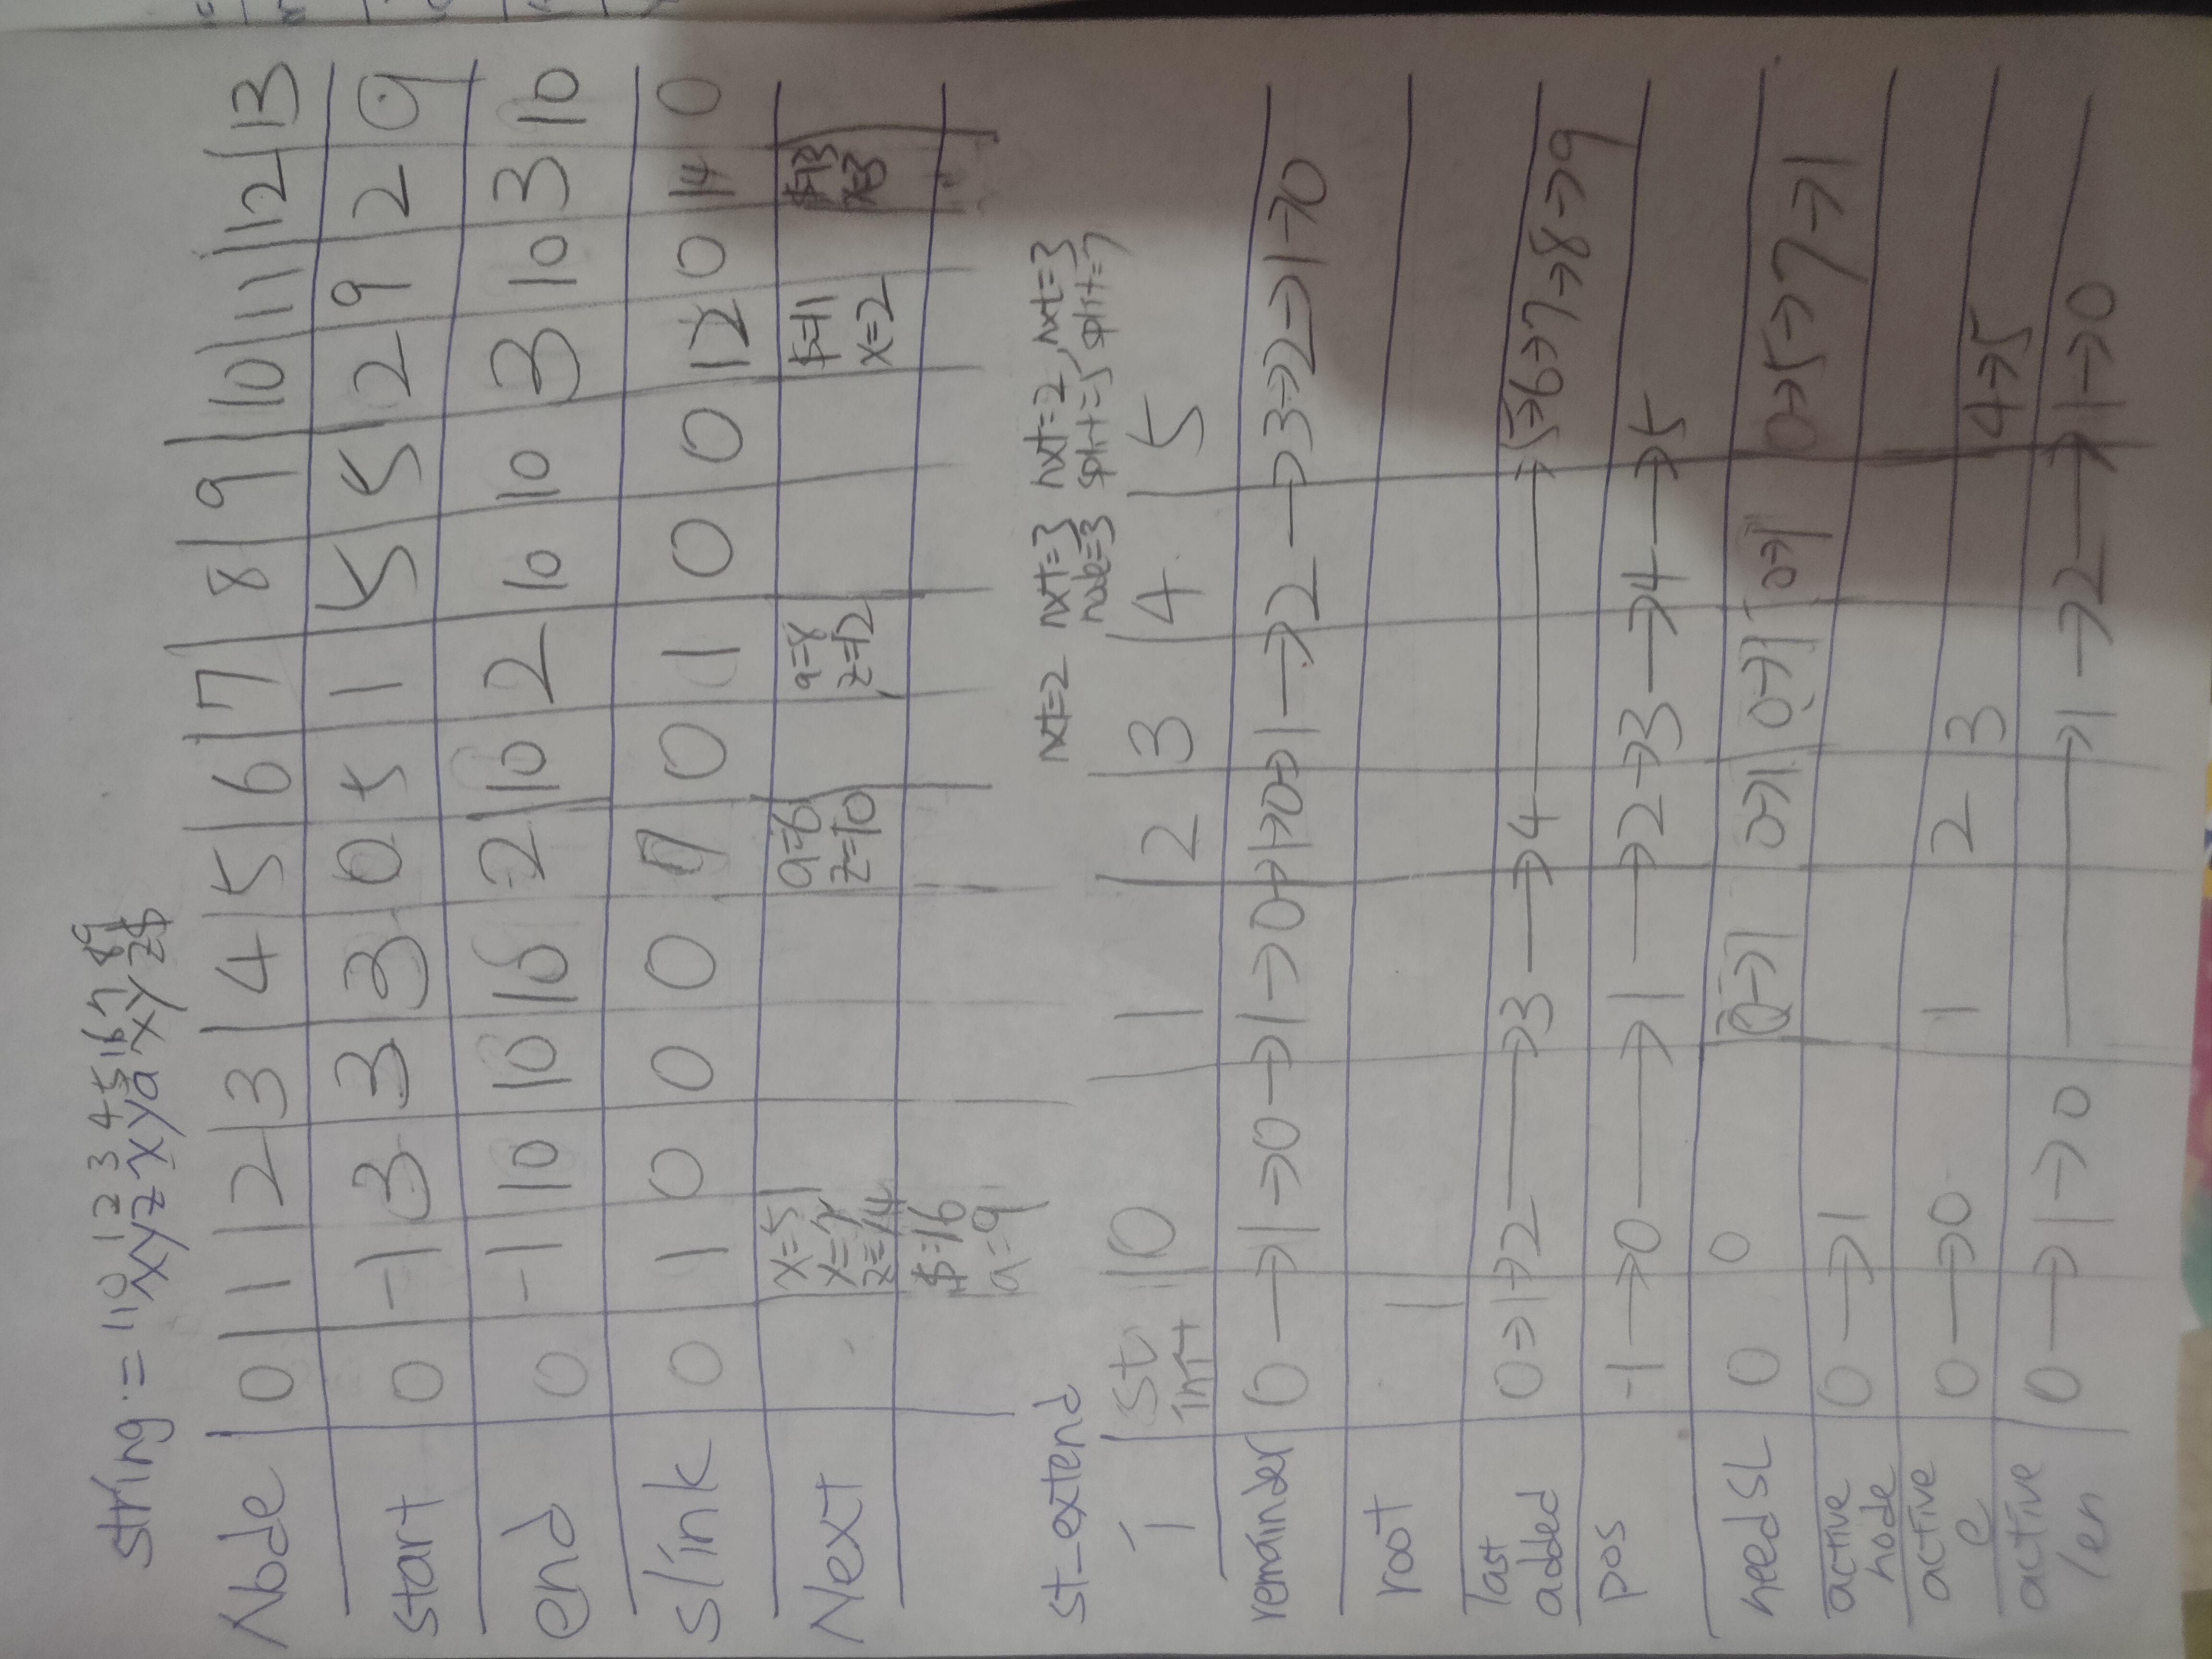 0 1 2 3 4 5 6 7 8 9
string := "xyzxyaxyz$
Node 0 1 2 3 4 5 6 7 8 9 10 11 12 13
start 0 -1 3 3 3 0 5 1 5 5 2 9 2 9
end 0 -1 10 10 10 2 10 2 10 10 3 10 3 10
slink 0 1 0 0 0 7 0 1 0 0 12 0 14 0
Next x=5 a=6 a=8 $=11 $=13
y=7 z=10 z=12 x=2 x=3
z=14
$=16
a=9
st_extend nxt=2 nxt=3 nxt=2, nxt=3
node=3 split=5 split=7
i st 0 1 2 3 4 5
init
remainder 0 →1→0→1→0→1→0→1→2→3→2→1→0
root 1
last
added 0→1→2→3→4→5→6→7→8→9
pos -1→0→1→2→3→4→5
needSL 0 0 0→1 0→1 0→1 0→1 0→5→7→1
active
node 0→1
active
e 0→0 1 2 3 4→5
active
len 0→1→0→1→2→1→0